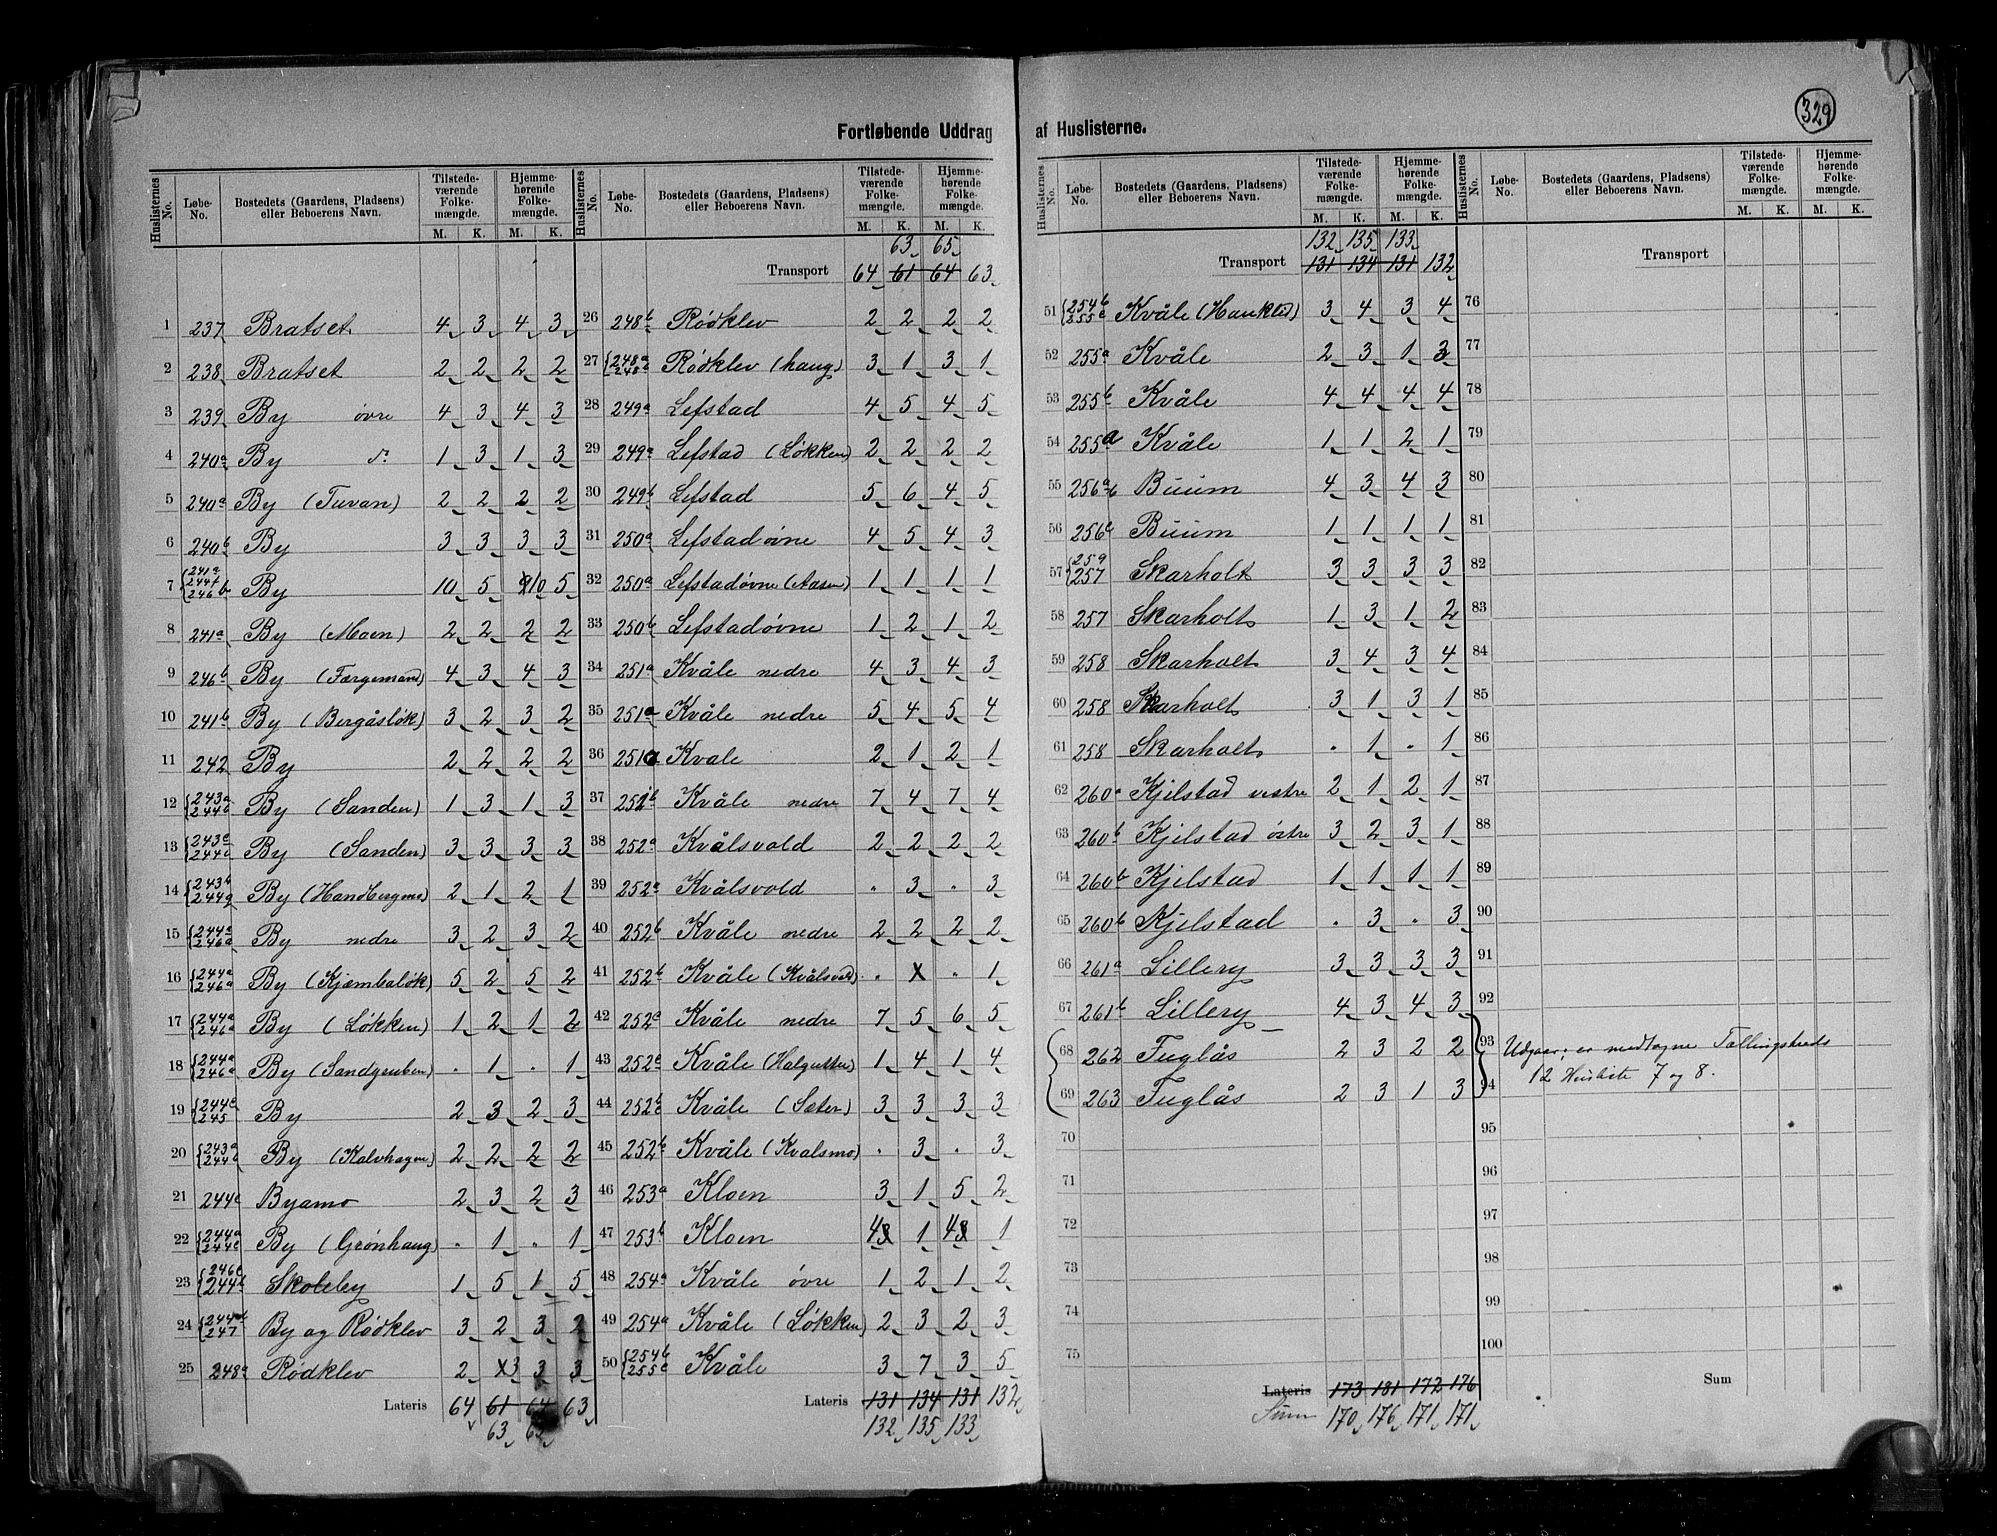 329
Fortløbende Uddrag af Huslisterne.
Huslisternes No. | Løbe-No. | Bostedets (Gaardens, Pladsens) eller Beboerens Navn. | Tilstedeværende Folkemængde. M. K. | Hjemmehørende Folkemængde. M. K.
1 237 Bratset 4 3 4 3
2 238 Bratset 2 2 2 2
3 239 By øvre 4 3 4 3
4 240a By do 1 3 1 3
5 240a By (Tuvan) 2 2 2 2
6 240b By 3 3 3 3
7 241a 244f 246b By 10 5 10 5
8 241a By (Moen) 2 2 2 2
9 246b By (Færgemand) 4 3 4 3
10 241b By (Bergåsløk) 3 2 3 2
11 242 By 2 2 2 2
12 243a 244b By (Sanden) 1 3 1 3
13 243c 244c By (Sanden) 3 3 3 3
14 243b 244g By (Handbergmo) 2 1 2 1
15 244a 246a By nedre 3 2 3 2
16 244a 246a By (Kjæmbaløk) 5 2 5 2
17 244a 246a By (Løkken) 1 2 1 2
18 244a 246a By (Sandgruben) . 1 . 1
19 244c 245 By 2 3 2 3
20 243a 244c By (Kalvhagen) 2 2 2 2
21 244c Byamo 2 3 2 3
22 244a 244c By (Grønhaug) . 1 . 1
23 246c 244h Skoleby 1 5 1 5
24 244d 247 By og Rödklev 3 2 3 2
25 248a Rödklev 2 3 3 3
Lateris 64 61 64 63
63 65
Huslisternes No. | Løbe-No. | Bostedets (Gaardens, Pladsens) eller Beboerens Navn. | Tilstedeværende Folkemængde. M. K. | Hjemmehørende Folkemængde. M. K.
63 65
Transport 64 61 64 63
26 248b Rödklev 2 2 2 2
27 248a 248b Rödklev (haug) 3 1 3 1
28 249a Lefstad 4 5 4 5
29 249a Lefstad (Løkken) 2 2 2 2
30 249b Lefstad 5 6 4 5
31 250a Lefstadøvne 4 5 4 3
32 250a Lefstadøvne (Aasen) 1 1 1 1
33 250b Lefstadøvne 1 2 1 2
34 251a Kvåle nedre 4 3 4 3
35 251a Kvåle nedre 5 4 5 4
36 251a Kvale 2 1 2 1
37 251b Kvåle nedre 7 4 7 4
38 252a Kvålsvold 2 2 2 2
39 252a Kvålsvold . 3 . 3
40 252b Kvåle nedre 2 2 2 2
41 252b Kvåle (Kvålsvold) . x . 1
42 252a Kvåle nedre 7 5 6 5
43 252c Kvåle (Halgutten) 1 4 1 4
44 252b Kvåle (Sæter) 3 3 3 3
45 252b Kvåle (Kvalsmo) . 3 . 3
46 253a Kloen 3 1 5 2
47 253b Kloen 4 1 4 1
48 254a Kvåle øvre 1 2 1 2
49 254a Kvåle (Løkken) 2 3 2 3
50 254b 255c Kvåle 3 7 3 5
Lateris 131 134 131 132
132 135 133
Huslisternes No. | Løbe-No. | Bostedets (Gaardens, Pladsens) eller Beboerens Navn. | Tilstedeværende Folkemængde. M. K. | Hjemmehørende Folkemængde. M. K.
132 135 133
Transport 131 134 131 132
51 254b 255c Kvåle (Hanklid) 3 4 3 4
52 255a Kvåle 2 3 1 3
53 255b Kvåle 4 4 4 4
54 255a Kvåle 1 1 2 1
55 256ab Buum 4 3 4 3
56 256c Buum 1 1 1 1
57 259 257 Skarholt 3 3 3 3
58 257 Skarholt 1 3 1 2
59 258 Skarholt 3 4 3 4
60 258 Skarholt 3 1 3 1
61 258 Skarholt . 1 . 1
62 260a Kjelstad vestre 2 1 2 1
63 260b Kjelstad østre 3 2 3 1
64 260b Kjelstad 1 1 1 1
65 260b Kjelstad . 3 . 3
66 261a Lillery 3 3 3 3
67 261b Lillery 4 3 4 3
68 262 Fuglås 2 3 2 2
69 263 Fuglås 2 3 1 3
70
71
72
73
74
75
Lateris 173 181 172 176
Sum 170 176 171 171
Huslisternes No. | Løbe-No. | Bostedets (Gaardens, Pladsens) eller Beboerens Navn. | Tilstedeværende Folkemængde. M. K. | Hjemmehørende Folkemængde. M. K.
Transport
76
77
78
79
80
81
82
83
84
85
86
87
88
89
90
91
92
93 Udgaar; er medtagne Tællingskreds
94 12 Husliste 7 og 8.
95
96
97
98
99
100
Sum